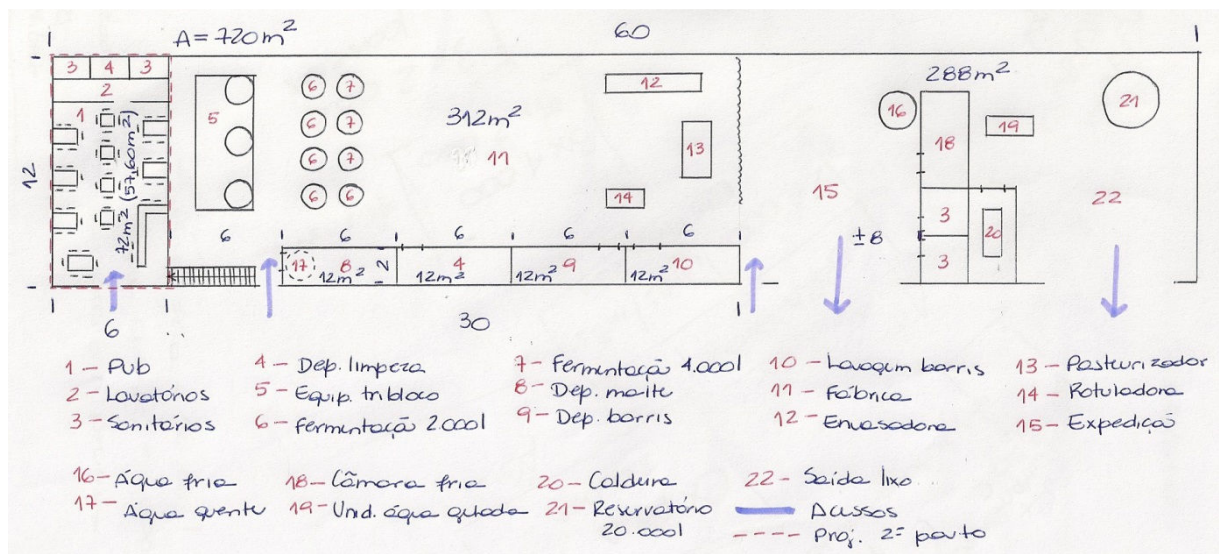 A = 720m²
60
3 4 3
2
1
12
72m² (57,60m²)
6
5
6
6 7
6 7
6 7
6 6
312m²
11
12
13
14
6 6 6 6
17 8 2 4 9 10
12m² 12m² 12m² 12m²
30
15
±8
288m²
16
18
19
21
3
3
20
22
1 - Pub
2 - Lavatórios
3 - Sanitários
4 - Dep. limpeza
5 - Equip. tribloco
6 - Fermentação 2.000l
7 - Fermentação 4.000l
8 - Dep. malte
9 - Dep. barris
10 - Lavagem barris
11 - Fábrica
12 - Envasadora
13 - Pasteurizador
14 - Rotuladora
15 - Expedição
16 - Água fria
17 - Água quente
18 - Câmara fria
19 - Unid. água gelada
20 - Caldeira
21 - Reservatório
20.000l
22 - Saída lixo
Acessos
Proj. 2º pavto